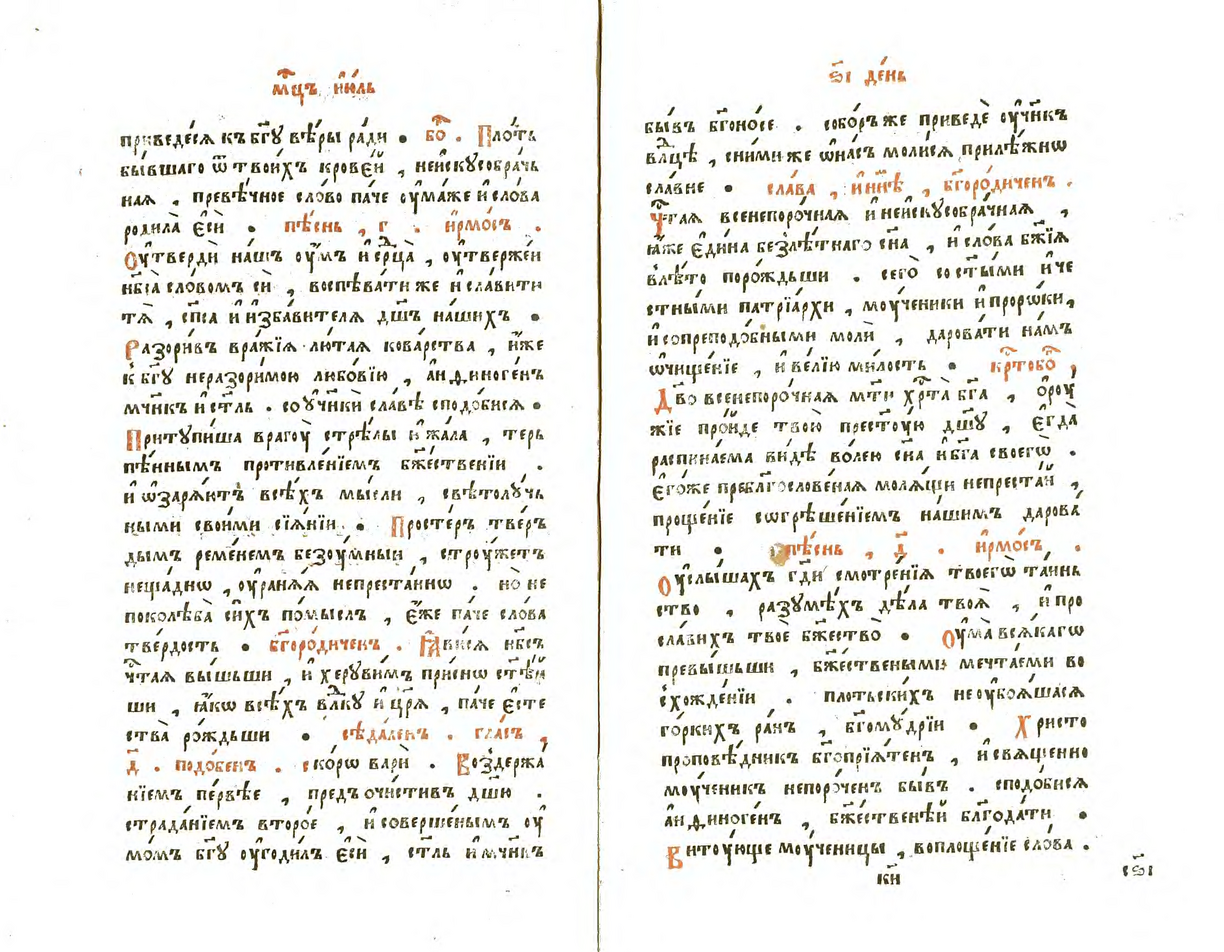 мц҃ъ і҆ю́ль
приведе́сѧ къ бг҃ꙋ вѣ́ры ра́ди . бо҃ . Пло́ть
бы́вшаго ѿ твои́хъ крове́й , неи҆скꙋсобра́ч
наѧ . превѣ́чное сло́во па́че оу҆ма́же и҆ сло́ва
родила̀ є҆сѝ . пѣ́снь , г҃ . і҆рмо́съ .
Оу҆твердѝ на́шъ оу҆́мъ и҆ срⷣца̀ , оу҆твержеи
нб҃са̀ сло́вомъ сѝ , воспѣва́ти же и҆ сла́вити
тѧ̀ , сп҃са и҆ и҆зба́вителѧ дш҃ъ на́шихъ .
Разори́въ вра́жїѧ лю́таѧ кова́рства , и҆́же
къ бг҃ꙋ неразори́мою любо́вїю , а҆нѳиноге́нъ
мч҃нкъ и҆ ст҃ль . со оу҆ч҃нкѝ сла́вѣ сподо́бисѧ .
Притꙋпи́ша врагоу̀ стрѣ́лы и҆ жа́ла , терь
пѣ́ннымъ противле́нїемъ бж҃е́ственїи .
и҆ ѡ҆зарѧ́итъ всѣ́хъ мы́сли , свѣтолꙋ́чь
ными свои́ми сїѧ́нїи . Просте́ръ тве́р
дымъ реме́немъ безоу́мныи , строу́жетъ
неща́днѡ , оу҆ранѧ́ѧ непреста́ннѡ . но̀ не
поколѣ́ба си́хъ по́мыслъ , є҆́же па́че сло́ва
тве́рдость . бг҃оро́диченъ . Ꙗ҆ви́сѧ нб҃съ
чтⷭ҇аѧ вы́шьши , и҆ херꙋви́мъ при́снѡ ст҃ѣ́и
ши , ꙗ҆́кѡ всѣ́хъ влⷣкꙋ и҆ цр҃ѧ̀ , па́че є҆сте
ства̀ ро́ждьши . сѣда́ленъ . гла́съ ,
д҃ . подо́бенъ . ско́рѡ варѝ . Воздержа́
нїемъ пе́рвѣе , предъ ѡ҆чи́стивъ дш҃ю .
страда́нїемъ второ́е , и҆ соверше́нымъ оу҆
мо́мъ бг҃ꙋ оу҆годи́лъ є҆сѝ , ст҃ль и҆ мч҃нкъ
ѕ҃і де́нь
бы́въ бг҃оно́се . собо́ръ же приведѐ оу҆ч҃нкъ
влⷣцѣ , сни́ми же ѡ҆ на́съ моли́сѧ прилѣ́жнѡ
сла́вне . сла́ва , и҆ нн҃ѣ , бг҃оро́диченъ .
Чтⷭ҇аѧ всенепоро́чнаѧ и҆ неи҆скꙋсобра́чнаѧ ,
ꙗ҆́же є҆ди́на безлѣ́тнаго сн҃а , и҆ сло́ва бж҃їѧ
влѣ́то поро́ждьши . сего̀ со ст҃ы́ми и҆ че
стны́ми патрїа́рхи , моу́ченики и҆ прⷪ҇рѡ́ки ,
и҆ сопреподо́бными молѝ , дарова́ти на́мъ
ѡ҆чище́нїе , и҆ ве́лїю ми́лость . крⷭ҇тобо҃ ,
Дв҃о всенепоро́чнаѧ мт҃и хрⷭ҇та̀ бг҃а , ѻ҆роу́
жїе про́йде твою̀ престоу́ю дш҃ꙋ , є҆гда̀
распина́ема ви́дѣ во́лею сн҃а и҆ бг҃а своегѡ̀ .
Є҆го́же пребл҃гослове́наѧ молѧ́щи непреста́й ,
проще́нїе согрѣше́нїемъ на́шимъ дарова́
ти . пѣ́снь , д҃ . і҆рмо́съ .
Оу҆слы́шахъ гд҃и смотре́нїѧ твоегѡ̀ та́инь
ство , разꙋмѣ́хъ дѣла̀ твоѧ̀ , и҆ про
сла́вихъ твоѐ бж҃ество̀ . Оу҆ма̀ всѧ́кагѡ
превы́шьши , бж҃е́ствеными мечта́еми во
схожде́нїи . пло́тьскихъ не оу҆боѧ́шасѧ
го́ркихъ ра́нъ , бг҃омꙋ́дрїи . Христо
проповѣ́дникъ бг҃опрїѧ́тенъ , и҆ свѧще́нно
моу́ченикъ непоро́ченъ бы́въ . сподо́бисѧ
а҆нѳиноге́нъ , бж҃е́ственѣй бл҃года́ти .
Витоу́юще моу́ченицы , воплоще́нїе сло́ва .
ки
сѕ҃і